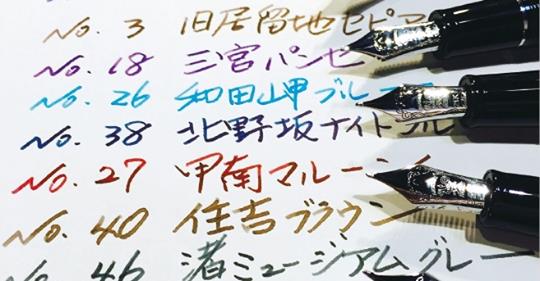 No. 3 旧居留地セピア
No. 18 三宮パンセ
No. 26 和田岬ブルー
No. 38 北野坂ナイトブル
No. 27 甲南マルーン
No. 40 住吉ブラウン
No. 46 渚ミュージアムグレー